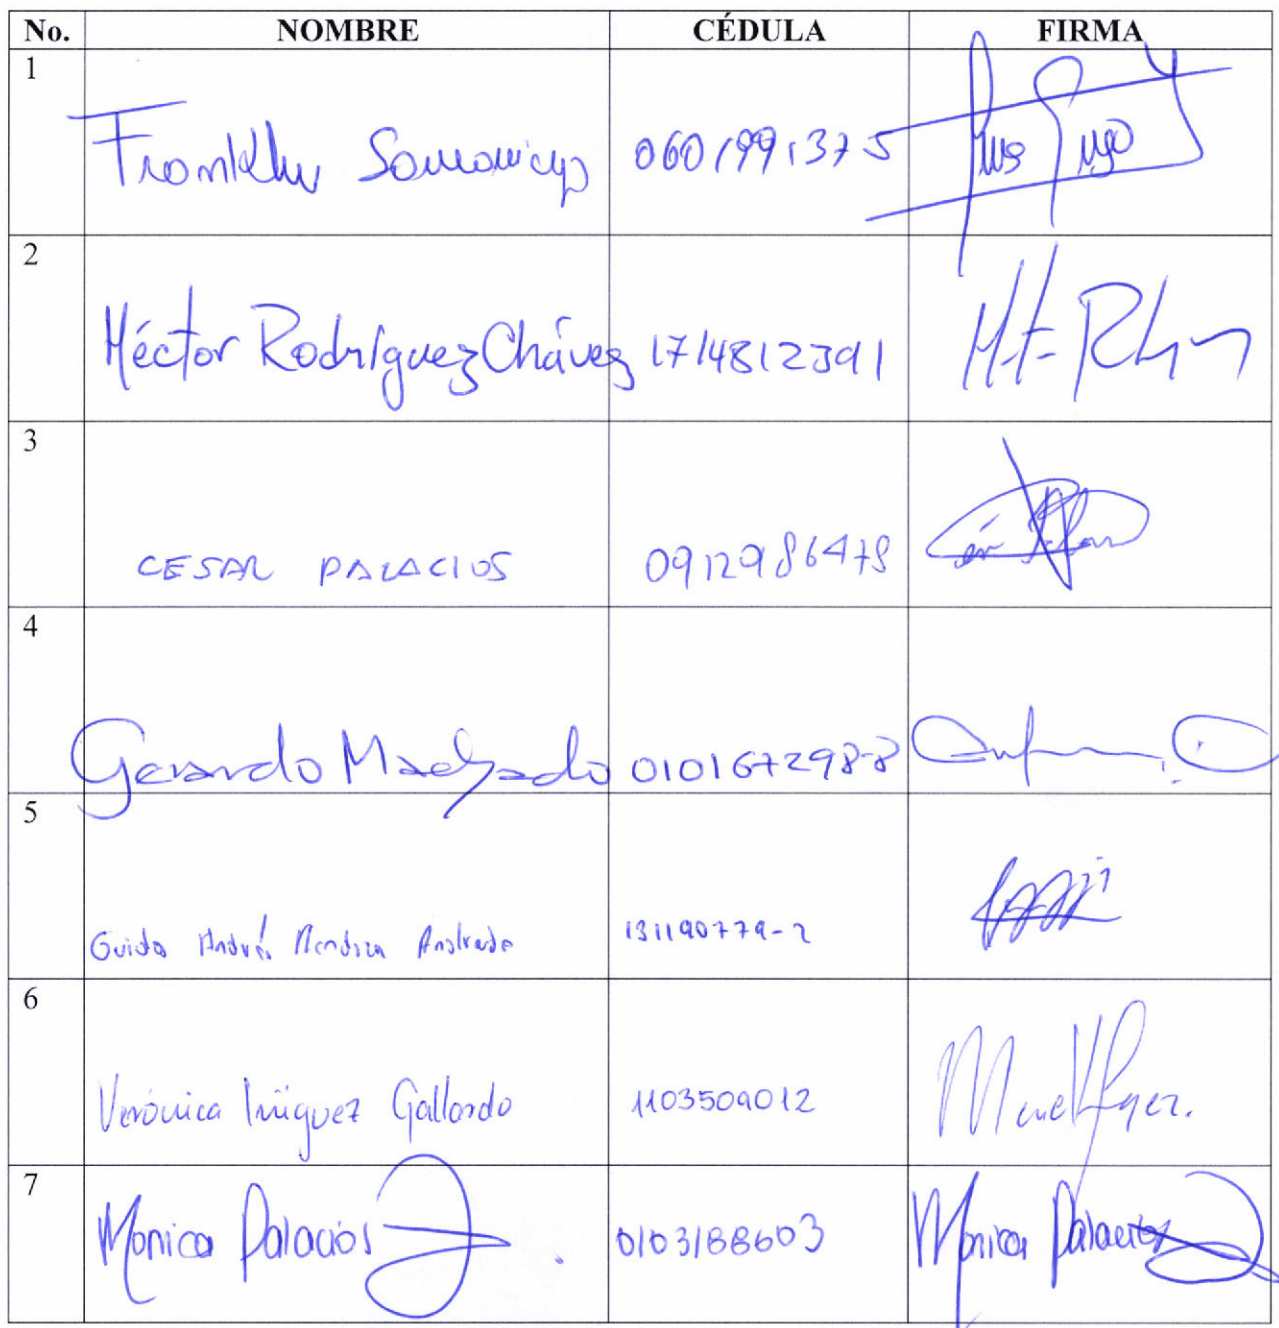 No. NOMBRE CÉDULA FIRMA
1
Franklin 0601991375
2
Héctor Rodríguez Chávez 1714812391
3
CESAR PALACIOS 0912986478
4
Gerardo Machado 010167298-8
5
Guido Andrés Mendoza Andrade 131190779-2
6
Verónica Iñiguez Gallardo 1103509012
7
Monica Palacios 0103188603 Monica Palacios